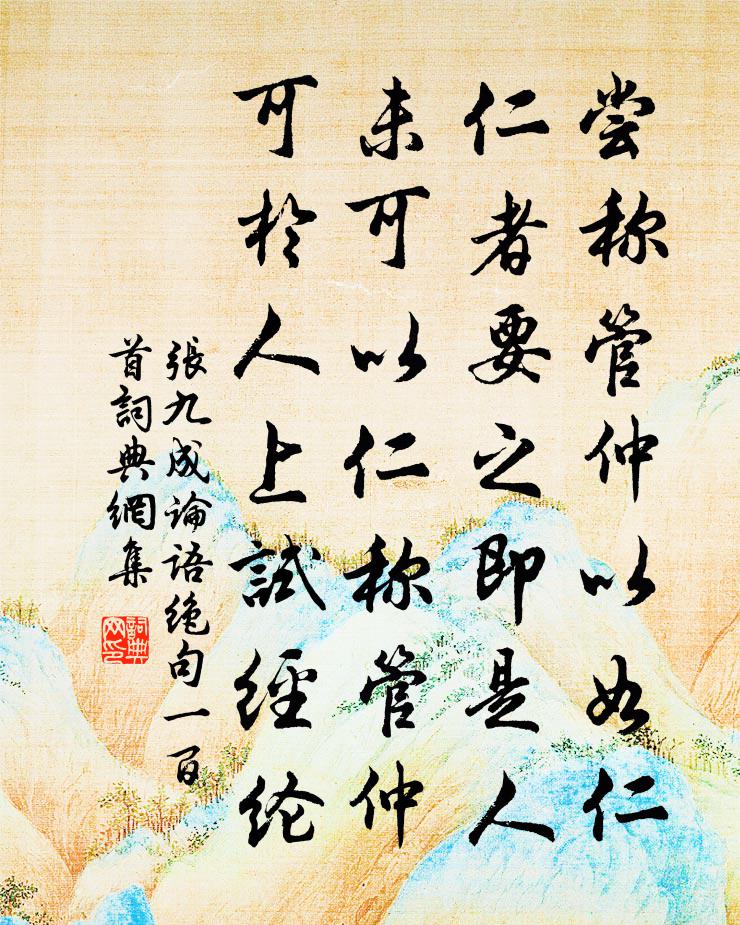 尝称管仲以如仁
仁者要之即是人
未可以仁称管仲
可於人上試經纶
張九成論语绝句一百
首詞典網集
詞典网印